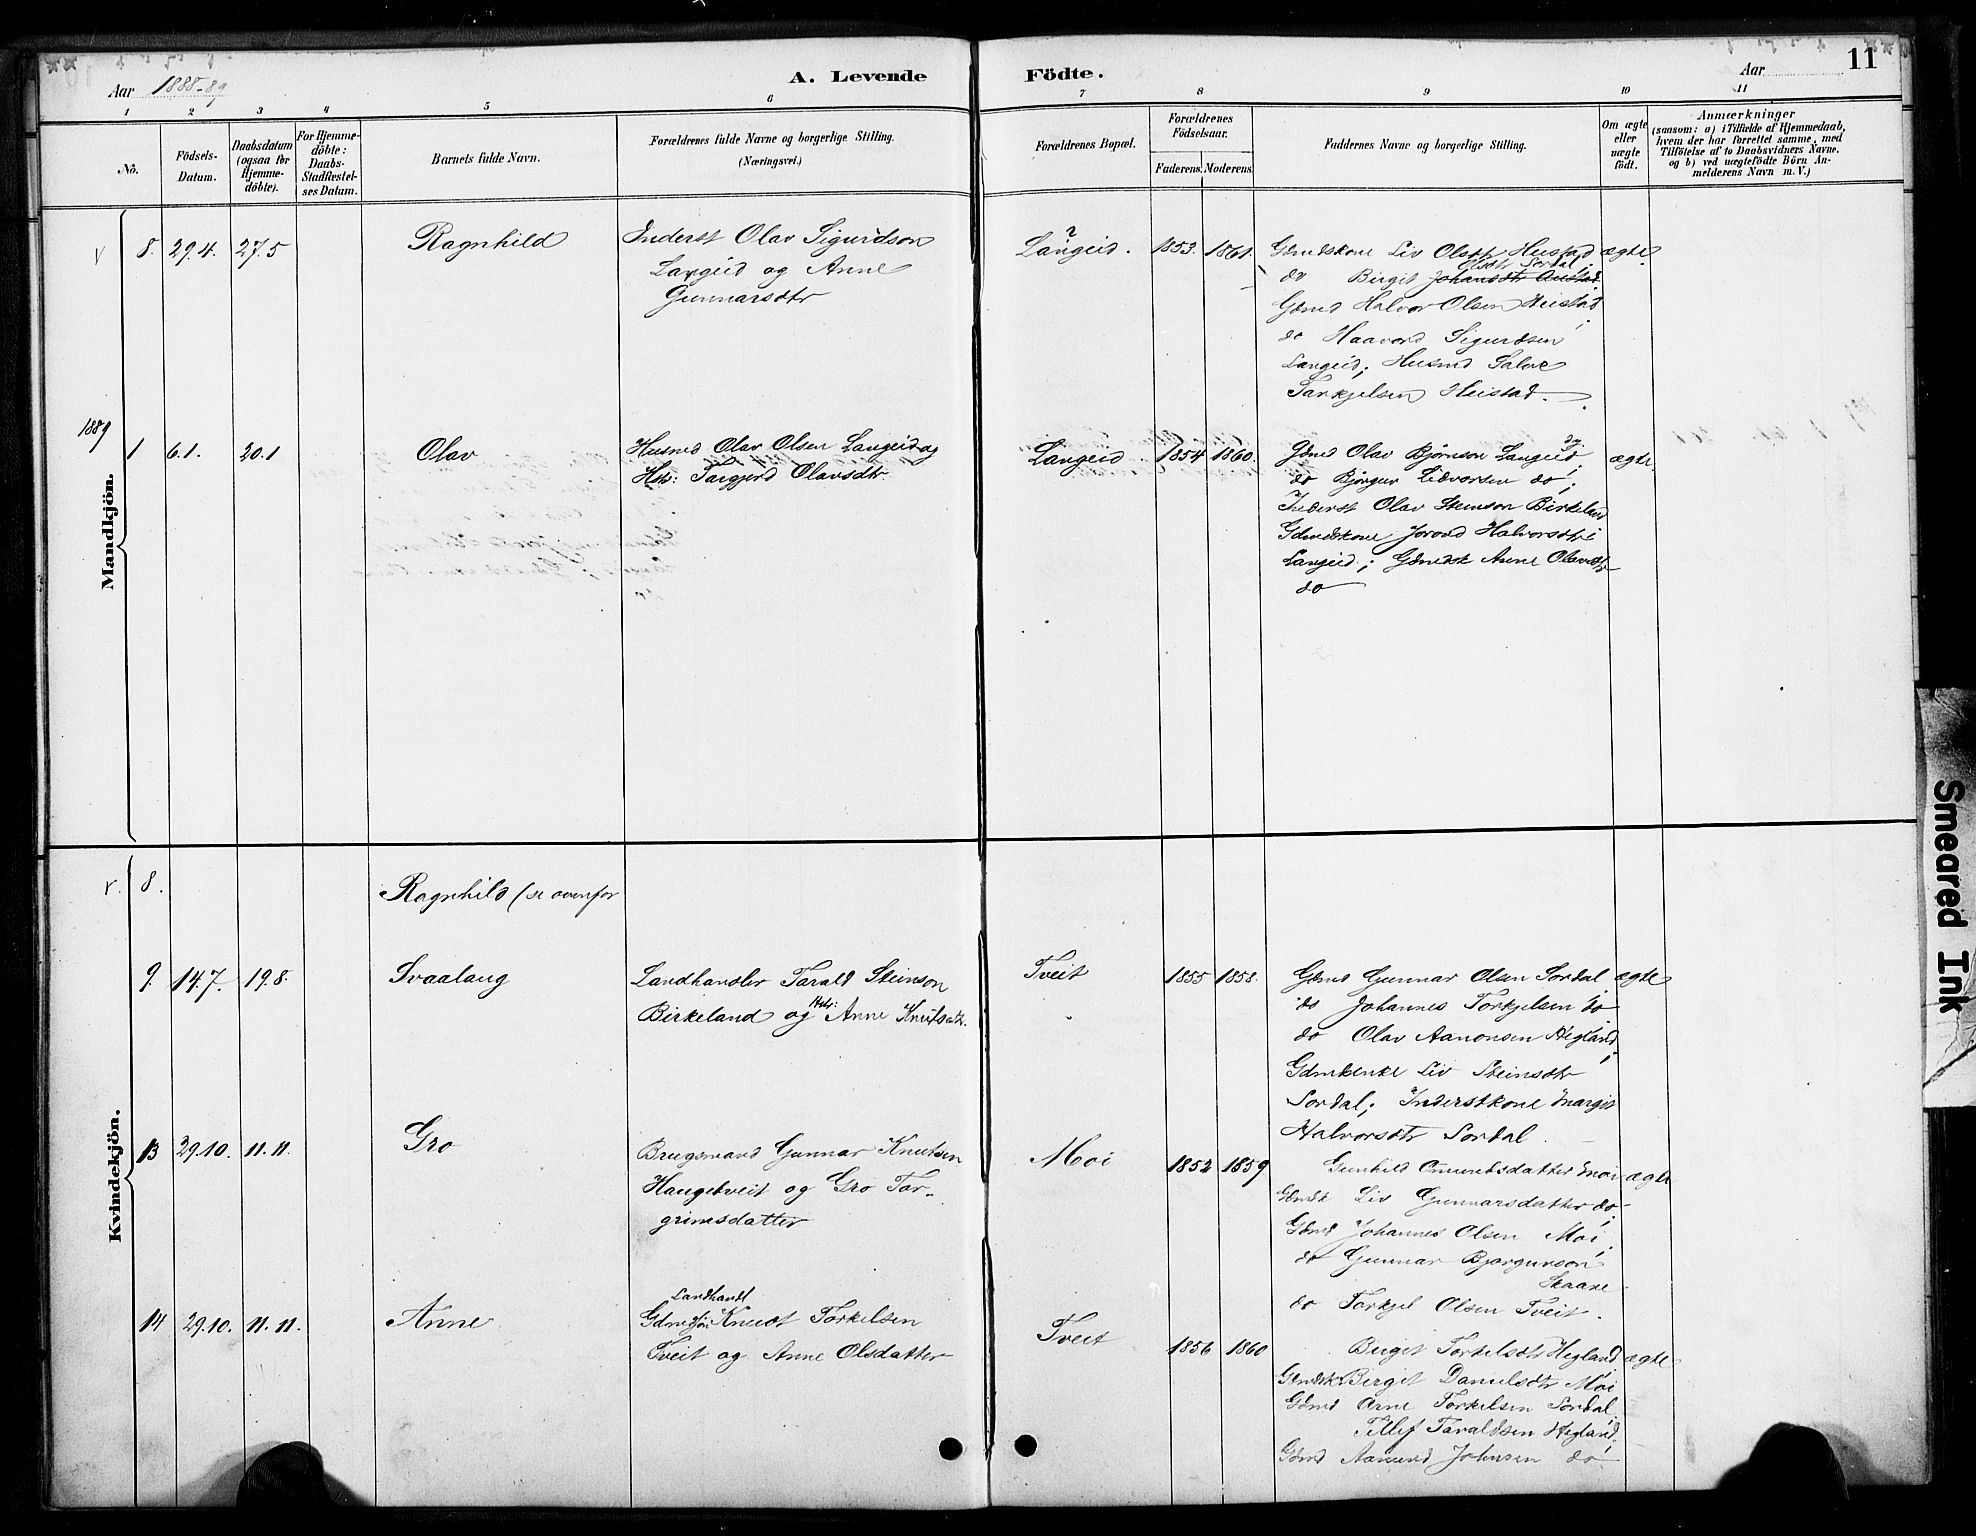 11
Aar 1888-89
A. Levende Födte.
Aar
1 2 3 4 5 6 7 8 9 10 11
No.
Födsels-Datum.
Daabsdatum (ogsaa for Hjemmedöbte).
For Hjemmedöbte: Daabs-Stadfæstelses Datum.
Barnets fulde Navn.
Forældrenes fulde Navne og borgerlige Stilling.
(Næringsvei.)
Forældrenes Bopæl.
Forældrenes Födselsaar.
Faderens. Moderens.
Faddernes Navne og borgerlige Stilling.
Om ægte eller uægte födt.
Anmærkninger
(saasom: a) i Tilfælde af Hjemmedaab, hvem der har forrettet samme, med Tilföielse af to Daabsvidners Navne, og b) ved uægtefödte Börn Anmelderens Navn m. V.)
Mandkjön.
8. 29.4. 27.5 Ragnhild
Inderst Olav Sigurdson
Langeid og Anne
Gunnarsdtr
Langeid. 1853. 1861.
Gdmdskone Liv Olsdtr Heistad ægte
Olsdtr Sordal;
do Birgit Johansdtr Austad
Gdmd Halvor Olsen Heistad
do Haavord Sigurdsen
Langeid; Husmd Salve
Tarkjelsen Heistad.
1889
1 6.1. 20.1 Olav
Husmd Olav Olsen Langeid og
Hstr: Targjerd Olavsdtr.
Langeid 1854 1860.
Gdmd Olav Bjørnson Langeid; ægte
do Bjørgur Lidvorsen do;
Inderst Olav Steinson Birkeland
Gdmdskone Jorond Halvorsdtr
Langeid; Gdmdsk Anne Olavsdtr
do
Kvindekjön.
8. Ragnhild (se ovenfor
9. 14.7. 19.8. Svaalaug
Landhandler Tarald Steinson
Birkeland og Hstr: Anne Knutsdtr.
Tveit 1855 1858.
Gdmd Gunnar Olsen Sordal ægte
do Johannes Torkjelsen do
do Olav Aanonsen Hegland;
Gdmdenke Liv Steinsdtr
Sordal; Inderstkone Margit
Halvorsdtr Sordal.
13 29.10. 11.11. Gro
Brugsmand Gunnar Knutsen
Haugetveit og Gro Tar-
grimsdatter
Moi 1852 1859
Gunhild Omundsdatter Moi ægte
Gdmdsk Liv Gunnarsdatter do
Gdmd Johannes Olsen Moi;
do Gunnar Bjorgunson
Skaare
do Torkjel Olsen Tveit.
14 29.10. 11.11. Anne
Landhandl
Knudt Torkelsen
Tveit og Anne Olsdatter
Tveit 1856 1860
Birgit Torkelsdtr Hegland ægte
Gdmdsk Birgit Danielsdtr Moi
Gdmd Arne Torkelsen Sordal,
Tellef Taraldsen Hegland;
Gdmd Aamund Johnsen do
Smeared Ink